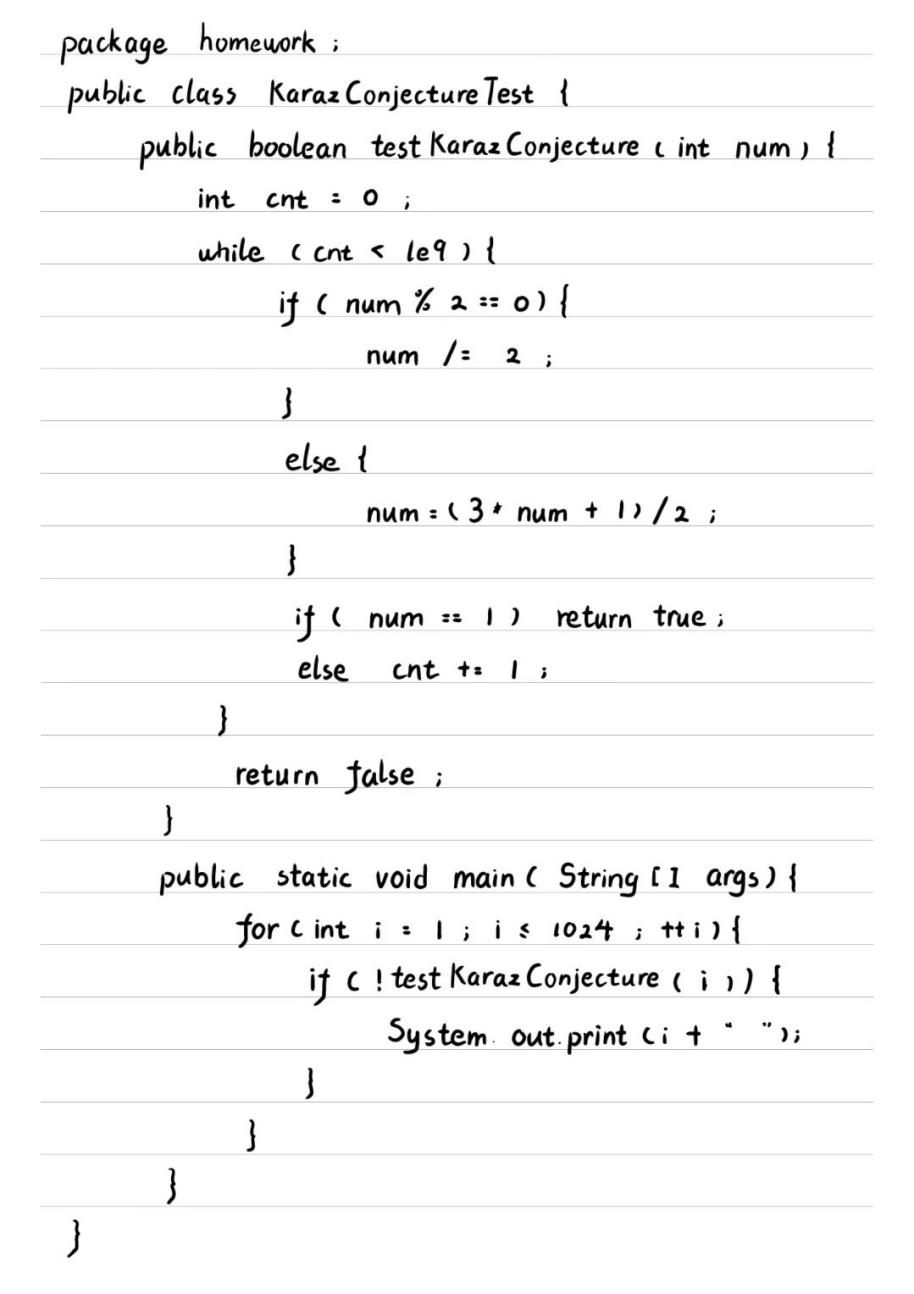 package homework ;
public class KarazConjectureTest {
public boolean testKarazConjecture ( int num ) {
int cnt = 0 ;
while ( cnt < 1e9 ) {
if ( num % 2 == 0 ) {
num /= 2 ;
}
else {
num = ( 3 * num + 1 ) / 2 ;
}
if ( num == 1 ) return true ;
else cnt += 1 ;
}
return false ;
}
public static void main ( String [ ] args ) {
for ( int i = 1 ; i ≤ 1024 ; ++i ) {
if ( ! testKarazConjecture ( i ) ) {
System.out.print ( i + " " ) ;
}
}
}
}